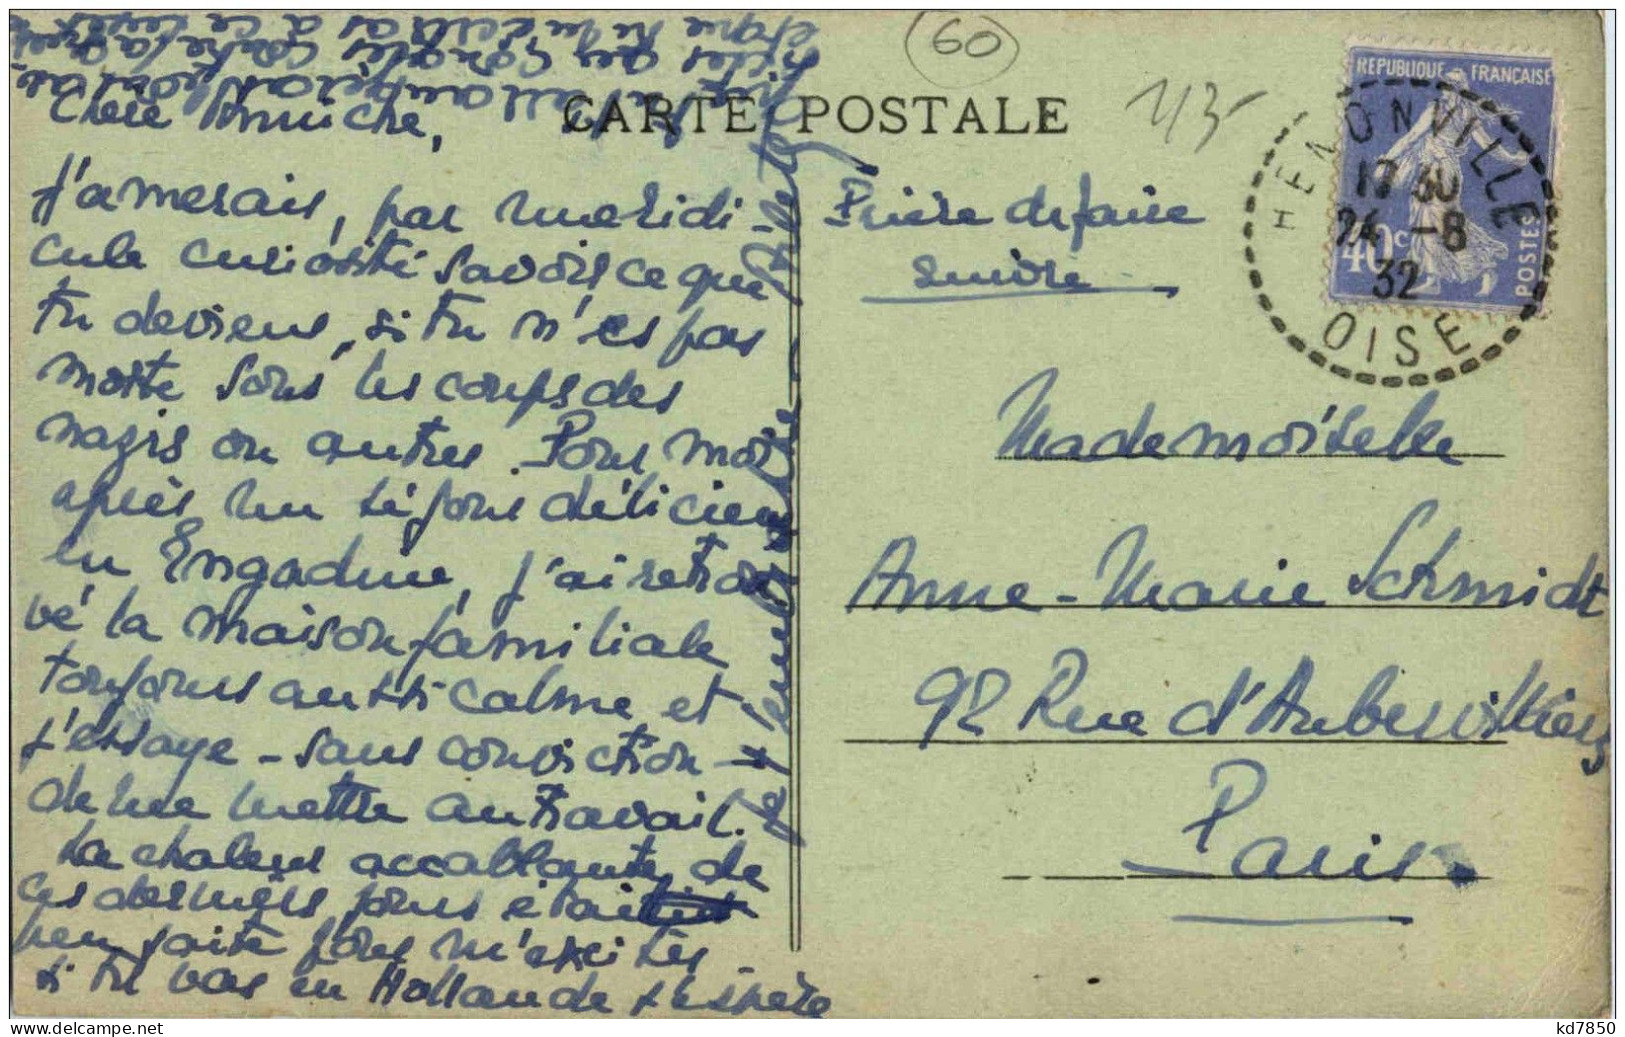 60
CARTE POSTALE
REPUBLIQUE FRANÇAISE
40c
POSTES
HENONVILLE
17 30
24 -8
32
OISE
Chère Annniche,
J'amerais, par une ridi-
cule curiosité savoir ce que
tu deviens, si tu n'es pas
morte sous les coups des
nazis ou autres. Pour moi
après un séjour délicieux
en Engadine, j'ai retrou
vé la maison familiale
toujours aussi calme et
j'essaye - sans conviction -
de me mettre au travail.
La chaleur accablante de
ces derniers jours était
peu faite pour m'exciter
si tu vas en Hollande j'espère
Prière de faire
suivre
Mademoiselle
Anne-Marie Schmidt
92 Rue d'Aubervilliers
Paris
kd7850